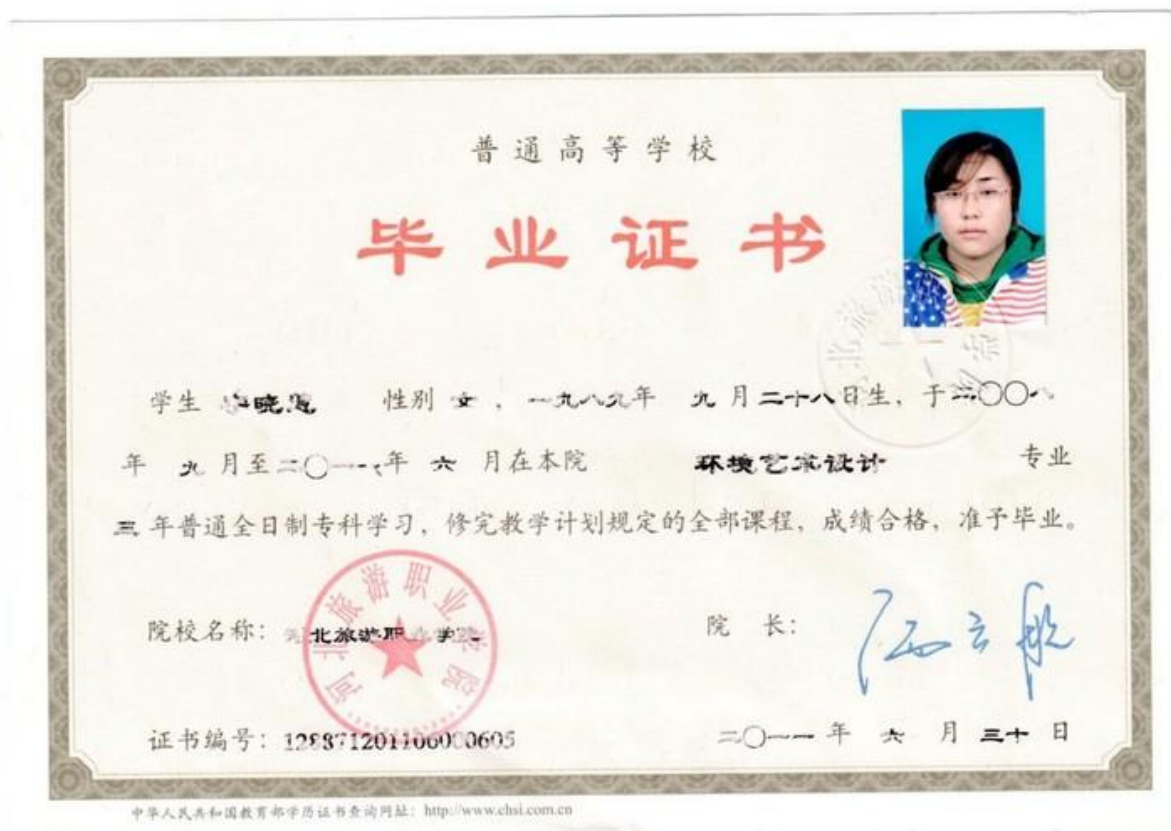 普通高等学校
毕业证书
学生 晓 性别 女，一九八九年 九月二十八日生，于二〇〇八
年 九月至二〇一一年 六 月在本院 环境艺术设计 专业
三年普通全日制专科学习，修完教学计划规定的全部课程，成绩合格，准予毕业。
院校名称：河北旅游职业学院 院 长：
河北旅游职业学院
证书编号：128871201106000605 二〇一一 年 六 月 三十 日
中华人民共和国教育部学历证书查询网址：http://www.chsi.com.cn